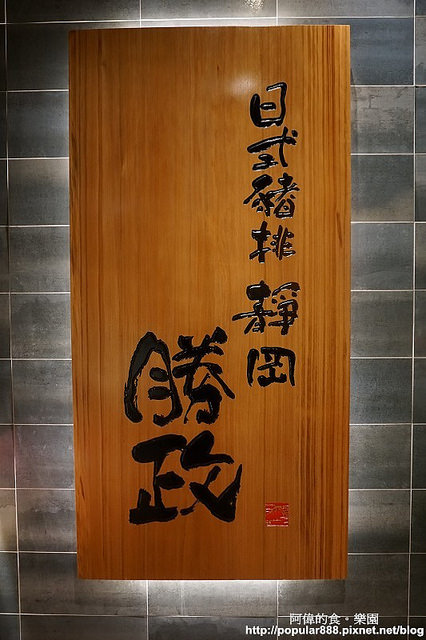 日式豬排 靜岡
勝政
阿偉的食。樂園
http://popular888.pixnet.net/blog